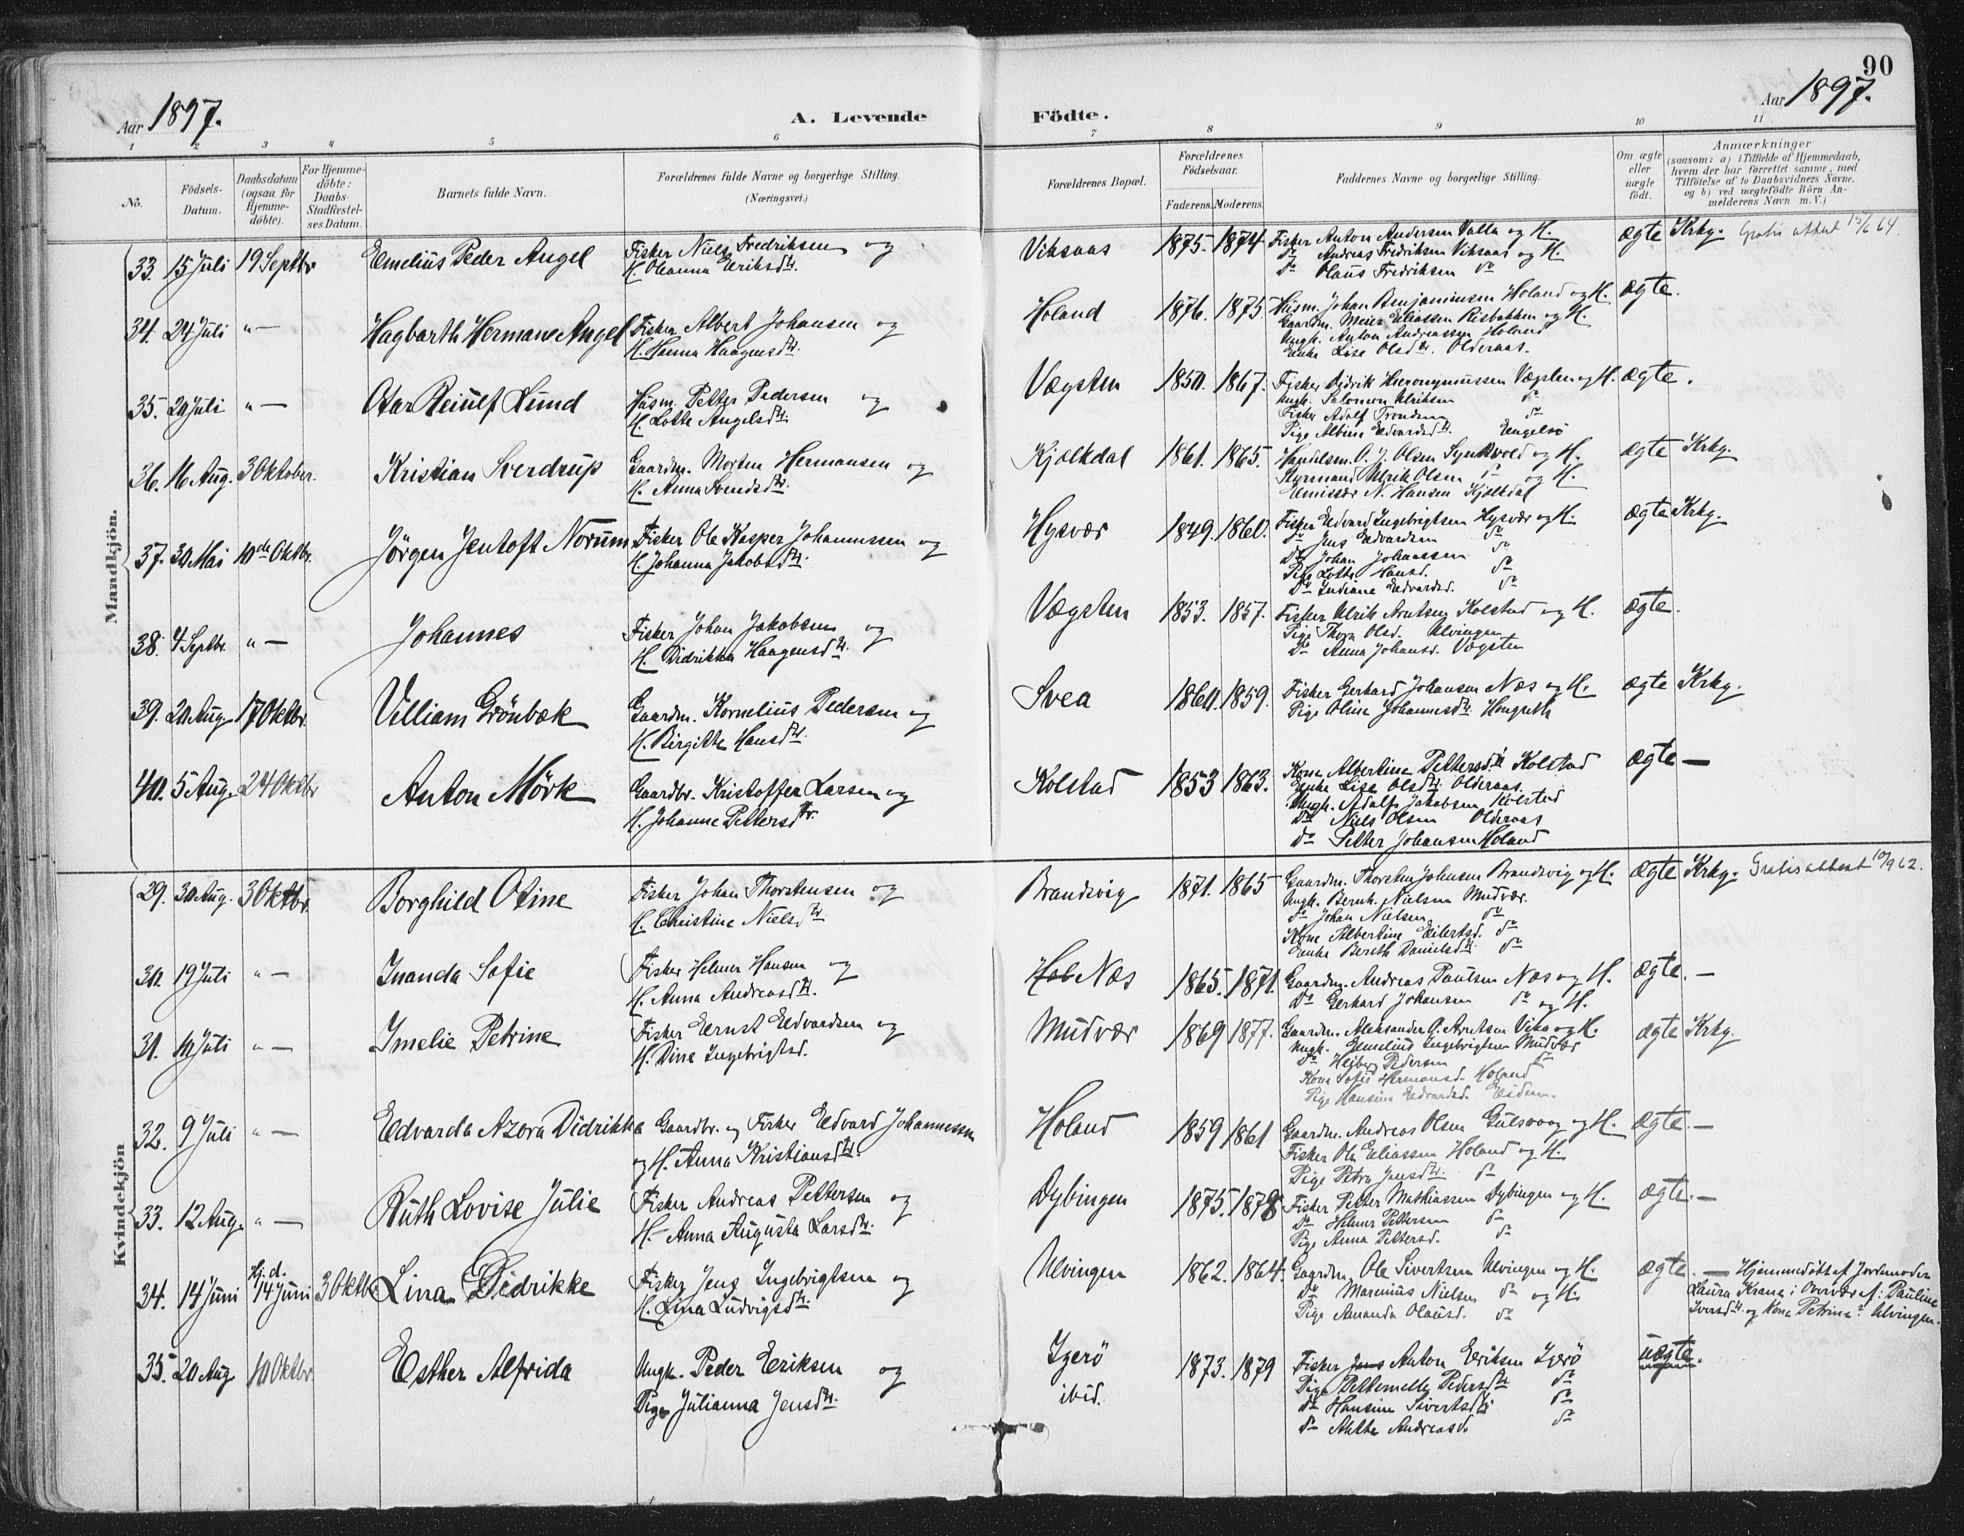 90
Aar 1897.
A. Levende Födte.
Aar 1897.
1 2 3 4 5 6 7 8 9 10 11
No.
Födsels-Datum.
Daabsdatum (ogsaa for Hjemmedöbte).
For Hjemmedöbte: Daabs-Stadfæstelses Datum.
Barnets fulde Navn.
Forældrenes fulde Navne og borgerlige Stilling.
(Næringsvei.)
Forældrenes Bopæl.
Forældrenes Födselsaar.
Faderens. Moderens.
Faddernes Navne og borgerlige Stilling.
Om ægte eller uægte födt.
Anmærkninger
(saasom: a) i Tilfælde af Hjemmedaab, hvem der har forrettet samme, med Tilföielse af to Daabsvidners Navne, og b) ved uægtefödte Börn Anmelderens Navn m. V.)
Mandkjön.
33. 15 Juli 19 Septbr Emelius Peder Angel
Fisker Niels Fredriksen og
H. Oleanna Eriksdtr.
Viksaas 1875. 1874
Fisker Anton Andersen Valla og H.
do Andreas Fredriksen Viksaas og H.
do Olaus Fredriksen do
ægte Krkg. Gratis attest 15/6 64.
34. 24 Juli " — Hagbarth Herman Angel
Fisker Albert Johansen og
H. Hanna Haagensdtr.
Holand 1876. 1875
Husm. Johan Benjaminsen Holand og H.
Gaardm. Meier Eliassen Risbakken og H.
Ungk. Anton Andreassen Holand
Enke Lise Olsdtr. Olderaas.
ægte.
35. 20 Juli " — Otar Reiulf Lund
Husm. Petter Pedersen og
H. Lotte Angelsdtr.
Vægsten 1850. 1867.
Fisker Didrik Hieronymussen Vægsten og H.
Ungk. Salomon Ulriksen do
Fisker Adolf Trondsen do
Pige Albine Edvardsdtr. Engelsö
ægte.
36. 16 Aug. 3 Oktober. Kristian Sverdrup
Gaardm. Morten Hermansen og
H. Anna Svendsdtr.
Kjölkdal 1861. 1865.
Handelsm. O. J. Olsen og H.
Styrmand Ulrik Olsen do og H.
Emissær N. Hansen Kjölkdal
ægte Krkg.
37. 30 Mai 10de Oktbr. Jörgen Jentoft Norum
Fisker Ole Kasper Johannessen og
H. Johanna Jakobsdtr.
Hysvær 1849. 1860.
Fisker Edvard Ingebrigtsen Hysvær og H.
do Jens Edvardsen do
do Johan Johanssen do
Pige Lotte Hansd. do
do Indiane Edvardsd. do
ægte Krkg.
38. 4 Septbr. " — Johannes
Fisker Johan Jakobsen og
H. Didrikka Haagensdtr.
Vægsten 1853. 1857.
Fisker Ulrik Arntsen Kolstad og H.
Pige Thora Olsd. Ulvingen
do Anna Johansd. Vægsten
ægte.
39. 20 Aug. 17 Oktbr. Villiam Grönbæk
Gaardm. Kornelius Pedersen og
H. Birgitte Hansdtr.
Svea 1860. 1859.
Fisker Gerhard Johansen Næs og H.
Pige Oline Johannesdtr.
ægte Krkg.
40. 5 Aug. 24 Oktbr Anton Mörk
Gaardbr. Kristoffer Larsen og
H. Johanne Pettersdtr.
Kolstad 1853 1863.
Kona Albertina Pettersdtr. Kolstad
Enke Lise Olsdtr. Olderaas.
Ungk. Adolf Jakobsen Kolstad
do Niels Olsen Olderaas
do Petter Johansen Holand
ægte —
Kvindekjön
29. 30 Aug. 3 Oktbr. Borghild Otine
Fisker Johan Thorstensen og
H. Christine Nielsdtr.
Brandsvig 1871. 1865
Gaardm. Thorsten Johnsen Brandsvig og H.
Ungk. Bernh. Nielsen Mudvær.
do Johan Nielsen do
Kone Albertine Eilertsd. do
Enke Bereth Danielsdtr. do
ægte Krkg. Gratis attest 10/9 62.
30. 19 Juli " — Inanda Sofie
Fisker Helmer Hansen og
H. Anna Andreasdtr.
Hol Næs 1865. 1871.
Gaardm. Andreas Paulsen Næs og H.
do Gerhard Johansen do og H.
ægte. —
31. 10 Juli " — Imelie Petrine
Fisker Ernst Edvardsen og
H. Dina Ingebrigtsd.
Mudvær 1869 1877.
Gaardm. Aleksander A. Arntsen Vika og H.
Ungk. Emelius Ingebrigtsen Mudvær
do Heiberg Pedersen do
Kona Sofie Hermansd. Holand
Pige Hansina Edvardsd.
ægte Krkg.
32. 9 Juli " — Edvarda Azora Didrikka
Gaardbr. og Fisker Edvard Johannessen
og H. Anna Kristiansdtr.
Holand 1859 1861
Gaardm. Andreas Olsen Gulsvaag og H.
Fisker Ole Eliassen Holand og H.
Pige Petra Jensdtr. do
ægte. —
33. 12 Aug. " — Ruth Lovise Julie
Fisker Andreas Pettersen og
H. Anna Augusta Larsdtr.
Dybingen 1875. 1878
Fisker Petter Mathiassen Dybingen og H.
do Helmer Pettersen do
Pige Anna Pettersd. do
ægte. —
34. 14 Juni Hj. d. 14 Juni 3 Oktbr. Lina Didrikke
Fisker Jens Ingebrigtsen og
H. Lina Ludvigsdtr.
Ulvingen 1862. 1864.
Gaardm. Ole Sivertsen Ulvingen og H.
do Marinius Nielsen do og H.
Pige Amanda Olausd. do
ægte. — Hjemmedöbt af Jordmoder
Laura Krane i Overvær af: Pauline
Iversdtr. og Kona Petrina ? Ulvingen.
35. 20 Aug. 10 Oktbr. Esther Alfrida
Ungk. Peder Eriksen og
Pige Julianna Jensdtr.
Igerö
ibid.
1873. 1879
Fisker Jens Anton Eriksen Igerö
Pige Petternelle Pedersdtr. do
do Hansine Sivertsdtr. do
do Andreasd. do
uægte.